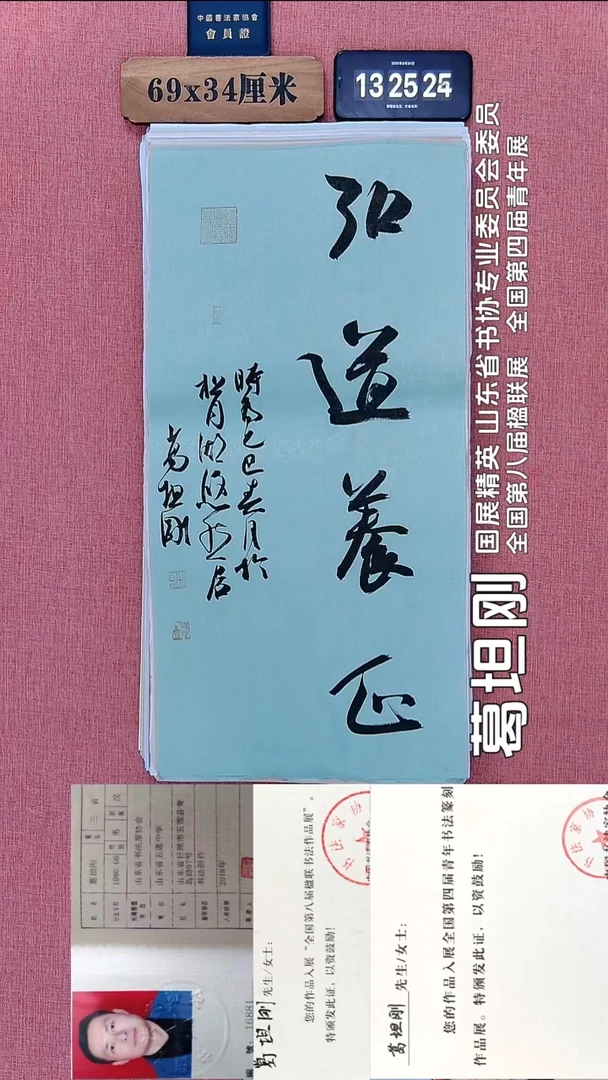 中國書法家協會
會員證
69x34厘米
13 25 24
弘道養正
時為乙巳春月於
松月湖悠然居
葛坦剛
葛坦刚
国展精英 山东省书协专业委员会委员
全国第八届楹联展 全国第四届青年展
姓名 葛坦刚
1980.06
男
汉
山东省书法家协会
山东省五莲中学
书法创作
2018年
編號：16881
葛坦刚 先生/女士：
您的作品入展“全国第八届楹联书法作品展”。
特颁发此证，以资鼓励！
葛坦刚 先生/女士：
您的作品入展全国第四届青年书法篆刻
作品展。特颁发此证，以资鼓励！